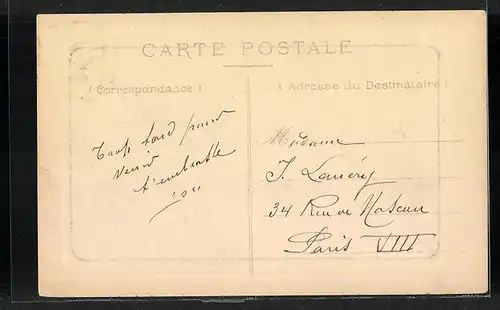 CARTE POSTALE
( Correspondance )
( Adresse du Destinataire )
Trop tard pour
venir
Madame
J. Laméry
34 Rue de Moscou
Paris VIII